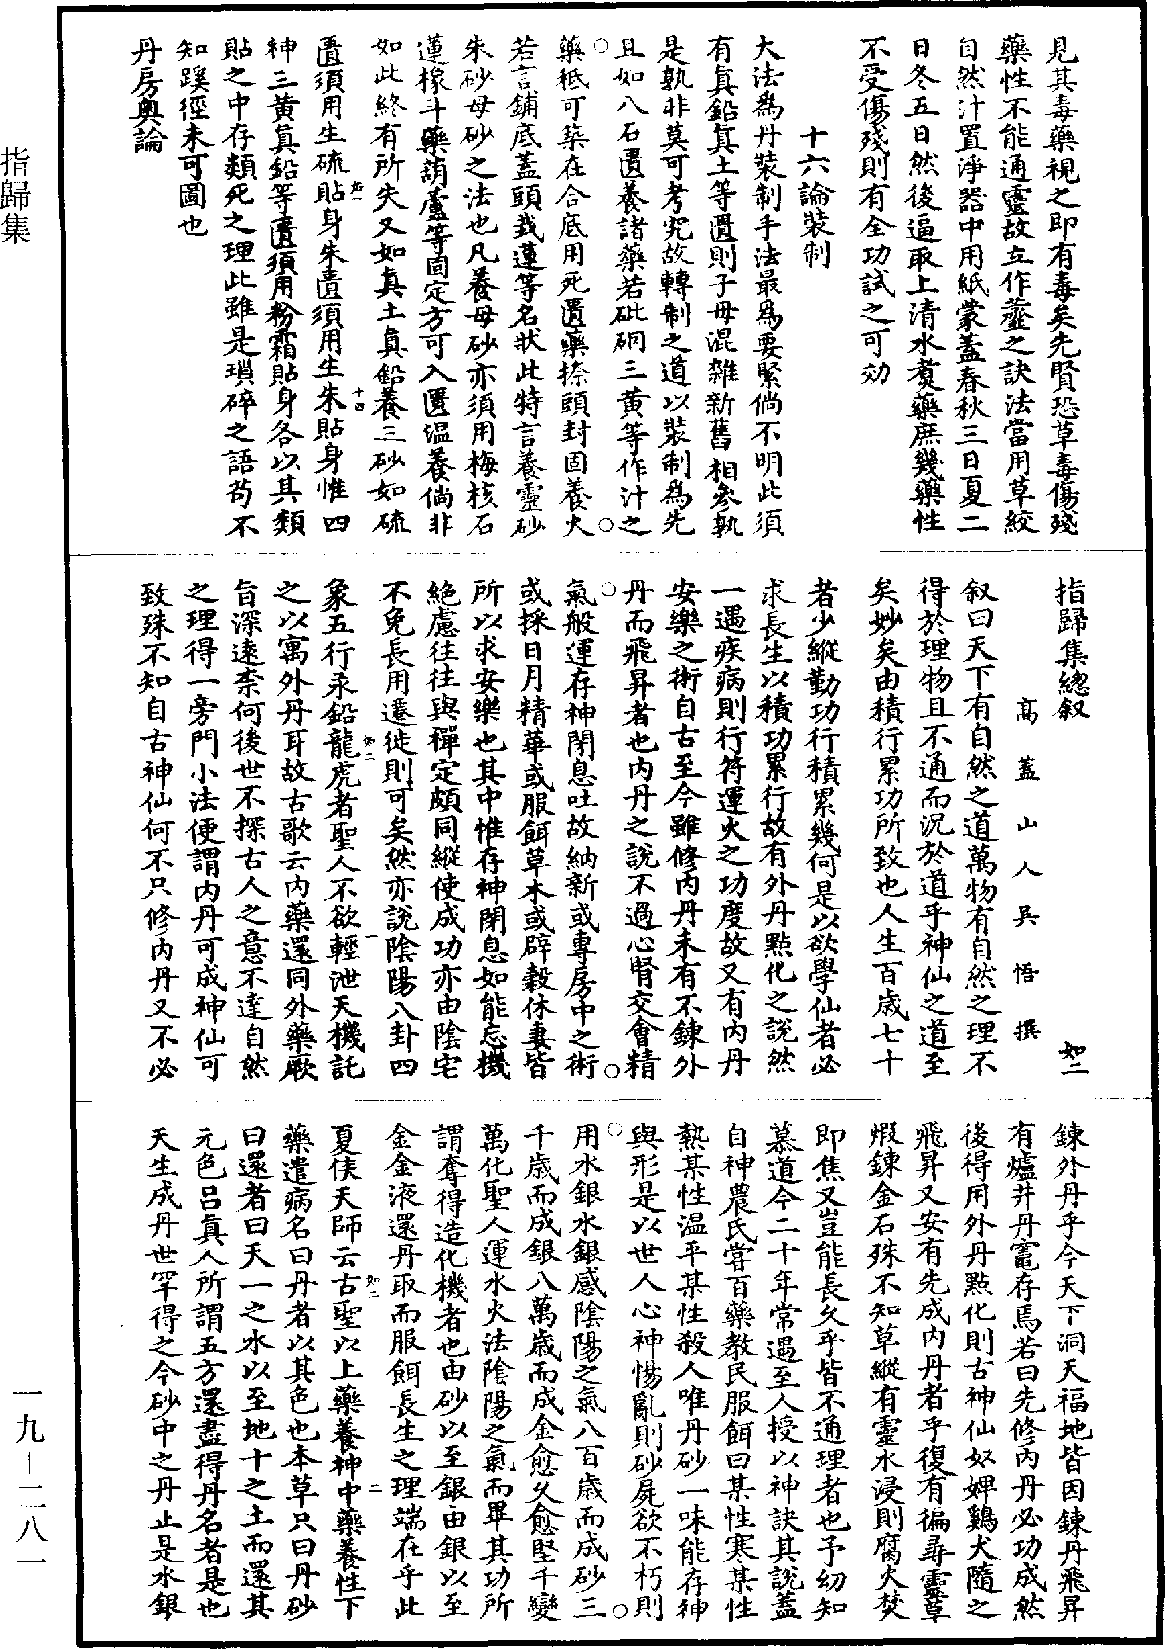 見其毒藥視之即有毒矣先賢恐草毒傷殘
藥性不能通靈故立作虀之訣法當用草絞
自然汁置淨器中用紙蒙蓋春秋三日夏二
日冬五日然後逼取上清水煑藥庶幾藥性
不受傷殘則有全功試之可効
十六論裝制
大法爲丹裝制手法最爲要緊倘不明此須
有真鉛真土等匱則子母混雜新舊相參孰
是孰非莫可考究故轉制之道以裝制爲先
且如八石匱養諸藥若砒硇三黄等作汁之
藥秪可築在合底用死匱藥捺頭封固養火
若言鋪底蓋頭栽蓮等名狀此特言養靈砂
朱砂母砂之法也凡養母砂亦須用梅核石
蓮橡斗藥葫蘆等固定方可入匱温養倘非
如此終有所失又如真土真鉛養三砂如硫
匱須用生硫貼身朱匱須用生朱貼身惟四
神三黄真鉛等匱須用粉霜貼身各以其類
貼之中存類死之理此雖是瑣碎之語苟不
知蹊徑未可圖也
丹房奥論
指歸集總叙
如二
高蓋山人吳悟撰
叙曰天下有自然之道萬物有自然之理不
得於理物且不通而況於道乎神仙之道至
矣妙矣由積行累功所致也人生百歳七十
者少縱勤功行積累幾何是以欲學仙者必
求長生以積功累行故有外丹點化之說然
一遇疾病則行符運火之功度故又有内丹
安樂之術自古至今雖修内丹未有不鍊外
丹而飛昇者也内丹之說不過心腎交會精
氣般運存神閉息吐故納新或專房中之術
或採日月精華或服餌草木或辟穀休妻皆
所以求安樂也其中惟存神閉息如能忘機
絶慮往往與禪定頗同縱使成功亦由陰宅
不免長用遷徙則可矣然亦說陰陽八卦四
象五行汞鉛龍虎者聖人不欲輕泄天機託
之以寓外丹耳故古歌云内藥還同外藥厥
旨深逺柰何後世不探古人之意不達自然
之理得一旁門小法便謂内丹可成神仙可
致殊不知自古神仙何不只修内丹又不必
鍊外丹乎今天下洞天福地皆因鍊丹飛昇
有爐井丹竈存焉若曰先修内丹必功成然
後得用外丹點化則古神仙奴婢鷄犬隨之
飛昇又安有先成内丹者乎復有徧尋靈草
煆鍊金石殊不知草縱有靈水浸則腐火焚
即焦又豈能長久乎皆不通理者也予幼知
慕道今二十年常遇至人授以神訣其說蓋
自神農氏嘗百藥教民服餌曰某性寒某性
熱某性温平某性殺人唯丹砂一味能存神
與形是以世人心神惕亂則砂屍欲不朽則
用水銀水銀感陰陽之氣八百歳而成砂三
千歳而成銀八萬歳而成金愈久愈堅千變
萬化聖人運水火法陰陽之氣而畢其功所
謂奪得造化機者也由砂以至銀由銀以至
金金液還丹取而服餌長生之理端在乎此
夏侯天師云古聖以上藥養神中藥養性下
藥遣病名曰丹者以其色也本草只曰丹砂
曰還者曰天一之水以至地十之土而還其
元色吕真人所謂五方還盡得丹名者是也
天生成丹世罕得之今砂中之丹止是水銀
指歸集
一九－二八一